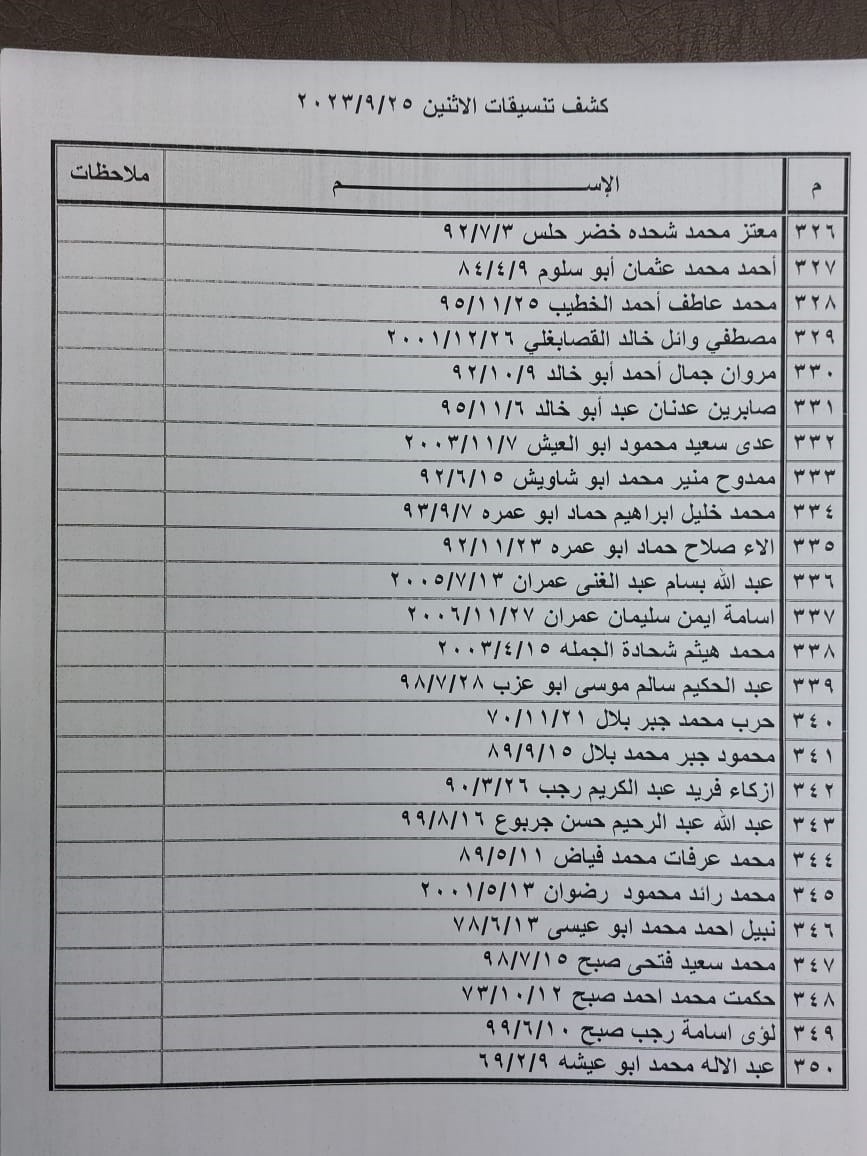 كشف تنسيقات الاثنين ٢٠٢٣/٩/٢٥
م الإســـــــــــــــــــــــــم ملاحظات
٣٢٦ معتز محمد شحده خضر حلس ٩٢/٧/٣
٣٢٧ أحمد محمد عثمان أبو سلوم ٨٤/٤/٩
٣٢٨ محمد عاطف أحمد الخطيب ٩٥/١١/٢٥
٣٢٩ مصطفي وائل خالد القصابغلي ٢٠٠١/١٢/٢٦
٣٣٠ مروان جمال أحمد أبو خالد ٩٢/١٠/٩
٣٣١ صابرين عدنان عبد أبو خالد ٩٥/١١/٦
٣٣٢ عدى سعيد محمود ابو العيش ٢٠٠٣/١١/٧
٣٣٣ ممدوح منير محمد ابو شاويش ٩٢/٦/١٥
٣٣٤ محمد خليل ابراهيم حماد ابو عمره ٩٣/٩/٧
٣٣٥ الاء صلاح حماد ابو عمره ٩٢/١١/٢٣
٣٣٦ عبد الله بسام عبد الغنى عمران ٢٠٠٥/٧/١٣
٣٣٧ اسامة ايمن سليمان عمران ٢٠٠٦/١١/٢٧
٣٣٨ محمد هيثم شحادة الجمله ٢٠٠٣/٤/١٥
٣٣٩ عبد الحكيم سالم موسى ابو عزب ٩٨/٧/٢٨
٣٤٠ حرب محمد جبر بلال ٧٠/١١/٢١
٣٤١ محمود جبر محمد بلال ٨٩/٩/١٥
٣٤٢ ازكاء فريد عبد الكريم رجب ٩٠/٣/٢٦
٣٤٣ عبد الله عبد الرحيم حسن جربوع ٩٩/٨/١٦
٣٤٤ محمد عرفات محمد فياض ٨٩/٥/١١
٣٤٥ محمد رائد محمود رضوان ٢٠٠١/٥/١٣
٣٤٦ نبيل احمد محمد ابو عيسى ٧٨/٦/١٣
٣٤٧ محمد سعيد فتحى صبح ٩٨/٧/١٥
٣٤٨ حكمت محمد احمد صبح ٧٣/١٠/١٢
٣٤٩ لؤى اسامة رجب صبح ٩٩/٦/١٠
٣٥٠ عبد الاله محمد ابو عيشه ٦٩/٢/٩